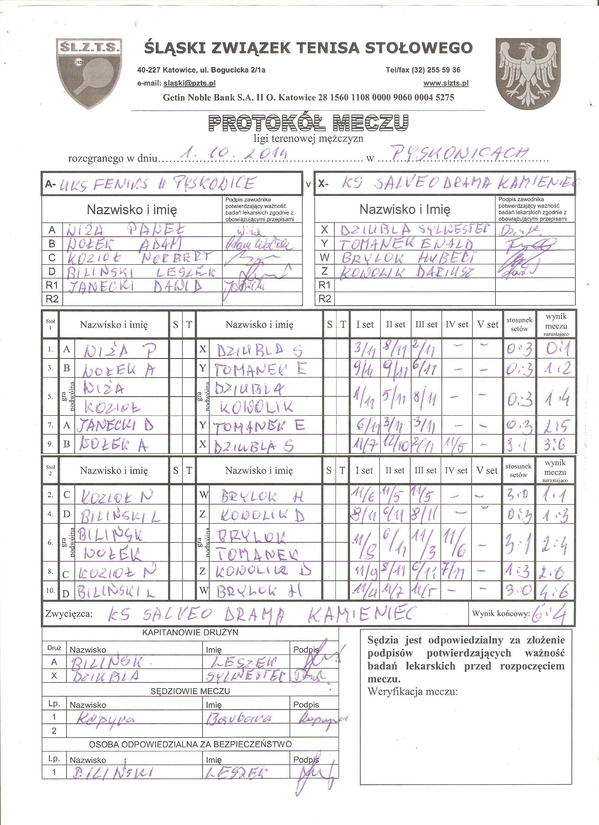 ŚL.Z.T.S.
ŚLĄSKI ZWIĄZEK TENISA STOŁOWEGO
40-227 Katowice, ul. Bogucicka 2/1a Tel/fax (32) 255 59 36
e-mail: slaski@pzts.pl www.slzts.pl
Getin Noble Bank S.A. II O. Katowice 28 1560 1108 0000 9060 0004 5275
PROTOKÓŁ MECZU
ligi terenowej mężczyzn
rozegranego w dniu 1.10.2014 w PYSKOWICACH
A- UKS FENIKS II PYSKOWICE v X- KS SALVEO DRAMA KAMIENIEC
Nazwisko i Imię Podpis zawodnika potwierdzający ważność badań lekarskich zgodnie z obowiązującymi przepisami Nazwisko i Imię Podpis zawodnika potwierdzający ważność badań lekarskich zgodnie z obowiązującymi przepisami
A NIŻA PAWEŁ X DZIUBLA SYLWESTER
B WOŁEK ADAM Y TOMANEK EWALD
C KOZIOŁ NORBERT W BRYLOK HUBERT
D BILIŃSKI LESZEK Z KOWOLIK DARIUSZ
R1 JANECKI DAWID R1
R2 R2
Stół 1 Nazwisko i imię S T Nazwisko i imię S T I set II set III set IV set V set stosunek setów wynik meczu narastająco
1. A NIŻA P X DZIUBLA S 3/11 8/11 2/11 0:3 0:1
3. B WOŁEK A Y TOMANEK E 9/11 9/11 6/11 - - 0:3 1:2
5. gra podwójna NIŻA DZIUBLA 1/11 5/11 8/11 0:3 1:4
KOZIOŁ KOWOLIK
7. A JANECKI D Y TOMANEK E 6/11 3/11 3/11 0:3 2:5
9. B WOŁEK A X DZIUBLA S 11/7 12/10 2/11 11/5 - 3:1 3:6
Stół 2 Nazwisko i imię S T Nazwisko i imię S T I set II set III set IV set V set stosunek setów wynik meczu narastająco
2. C KOZIOŁ N W BRYLOK H 11/6 11/5 11/5 - - 3:0 1:1
4. D BILIŃSKI L Z KOWOLIK D 8/11 6/11 8/11 - - 0:3 1:3
6. gra podwójna BILIŃSK BRYLOK 11/3 11/6 - 3:1 2:4
WOŁEK TOMANEK
8. C KOZIOŁ N Z KOWOLIK D 11/9 8/11 6/12 7/11 - 1:3 2:6
10. D BILIŃSKI L W BRYLOK H 11/4 11/7 11/5 - - 3:0 4:6
Zwycięzca: KS SALVEO DRAMA KAMIENIEC Wynik końcowy: 6:4
KAPITANOWIE DRUŻYN
Druż Nazwisko Imię Podpis
A BILIŃSK. LESZEK
X DZIUBLA SYLWESTER
SĘDZIOWIE MECZU
Lp. Nazwisko Imię Podpis
1 Kopyra Barbara Kopyra
2
OSOBA ODPOWIEDZIALNA ZA BEZPIECZEŃSTWO
Lp. Nazwisko Imię Podpis
1 BILIŃSKI LESZEK
Sędzia jest odpowiedzialny za złożenie
podpisów potwierdzających ważność
badań lekarskich przed rozpoczęciem
meczu.
Weryfikacja meczu: